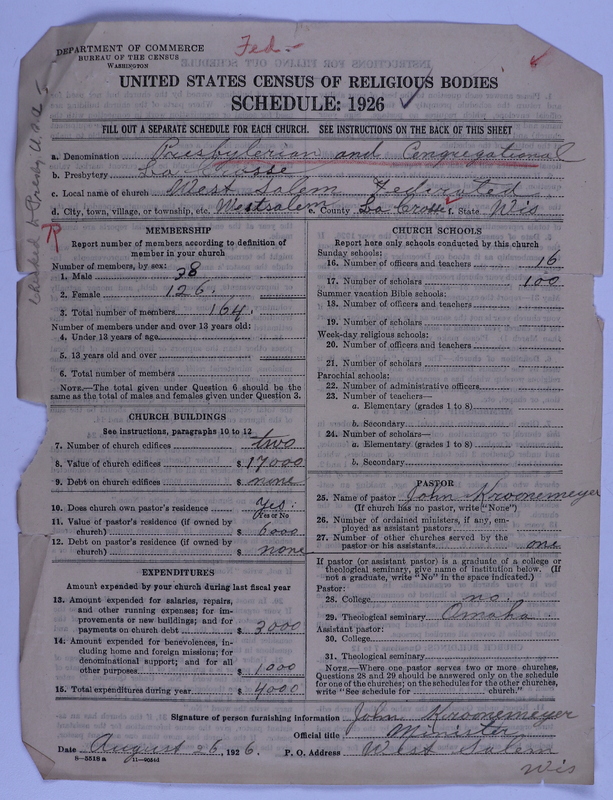 DEPARTMENT OF COMMERCE
BUREAU OF THE CENSUS
WASHINGTON
Fed.-
UNITED STATES CENSUS OF RELIGIOUS BODIES
SCHEDULE: 1926
FILL OUT A SEPARATE SCHEDULE FOR EACH CHURCH. SEE INSTRUCTIONS ON THE BACK OF THIS SHEET
a. Denomination Presbyterian and Congregational
b. Presbytery La Crosse
c. Local name of church West Salem Federated
d. City, town, village, or township, etc. Westsalem e. County La Crosse f. State Wis
MEMBERSHIP
Report number of members according to definition of
member in your church
Number of members, by sex:
1. Male 38
2. Female 126.
3. Total number of members 164.
Number of members under and over 13 years old:
4. Under 13 years of age
5. 13 years old and over
6. Total number of members
NOTE.—The total given under Question 6 should be the
same as the total of males and females given under Question 3.
CHURCH BUILDINGS
See instructions, paragraphs 10 to 12
7. Number of church edifices two
8. Value of church edifices $ 17000
9. Debt on church edifices $ none
10. Does church own pastor's residence? Yes.
Yes or No
11. Value of pastor's residence (if owned by
church) $ 6000
12. Debt on pastor's residence (if owned by
church) $ none
EXPENDITURES
Amount expended by your church during last fiscal year
13. Amount expended for salaries, repairs,
and other running expenses; for im-
provements or new buildings; and for
payments on church debt $ 3000
14. Amount expended for benevolences, in-
cluding home and foreign missions; for
denominational support; and for all
other purposes $ 1000
15. Total expenditures during year $ 4000
CHURCH SCHOOLS
Report here only schools conducted by this church
Sunday schools:
16. Number of officers and teachers 16
17. Number of scholars 100
Summer vacation Bible schools:
18. Number of officers and teachers
19. Number of scholars
Week-day religious schools:
20. Number of officers and teachers
21. Number of scholars
Parochial schools:
22. Number of administrative officers
23. Number of teachers—
a. Elementary (grades 1 to 8)
b. Secondary
24. Number of scholars—
a. Elementary (grades 1 to 8)
b. Secondary
PASTOR
25. Name of pastor John Kroonemeyer
(If church has no pastor, write "None")
26. Number of ordained ministers, if any, em-
ployed as assistant pastors
27. Number of other churches served by the
pastor or his assistants one
If pastor (or assistant pastor) is a graduate of a college or
theological seminary, give name of institution below. (If
not a graduate, write "No" in the space indicated.)
Pastor:
28. College no.
29. Theological seminary Omaha
Assistant pastor:
30. College
31. Theological seminary
NOTE.—Where one pastor serves two or more churches,
Questions 28 and 29 should be answered only on the schedule
for one of the churches; on the schedules for the other churches,
write "See schedule for church."
Signature of person furnishing information John Kroonemeyer
Official title Minister
Date August 26, 1926. P. O. Address West Salem
Wis
8—5518 a